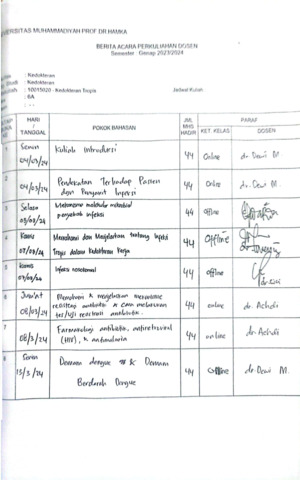 ERSITAS MUHAMMADIYAH PROF DR HAMKA
BERITA ACARA PERKULIAHAN DOSEN
Semester : Genap 2023/2024
: Kedokteran
: Kedokteran
: 10015020 - Kedokteran Tropis
Jadwal Kuliah
: 6A
HARI / TANGGAL
POKOK BAHASAN
JML MHS HADIR
PARAF
KET. KELAS
DOSEN
1
Senin 04/03/24
Kuliah Introduksi
44
Online
dr. Dewi M.
2
04/03/24
Pendekatan Terhadap Pasien
dgn Penyakit Infeksi
44
Online
dr. Dewi M.
3
Selasa 05/03/24
Mekanisme molekular mikrobial
penyebab infeksi
44
offline
4
Kamis 07/03/24
Memahami dan Menjelaskan tentang Infeksi
Tropis dalam Kedokteran Kerja
44
Offline
5
Kamis 07/03/24
Infeksi nosokomial
44
offline
6
Jum'at 08/03/24
Memahami & menjelaskan mekanisme
resistensi antibiotik & cara melakukan
tes/uji resistensi antibiotik.
44
online
dr. Achdi
7
08/3/24
Farmakologi antibiotik, antiretroviral
(HIV), & antimalaria
44
online
dr Achdi
8
Senin
Demam dengue & Demam
Berdarah Dengue
44
Offline
dr Dewi M.